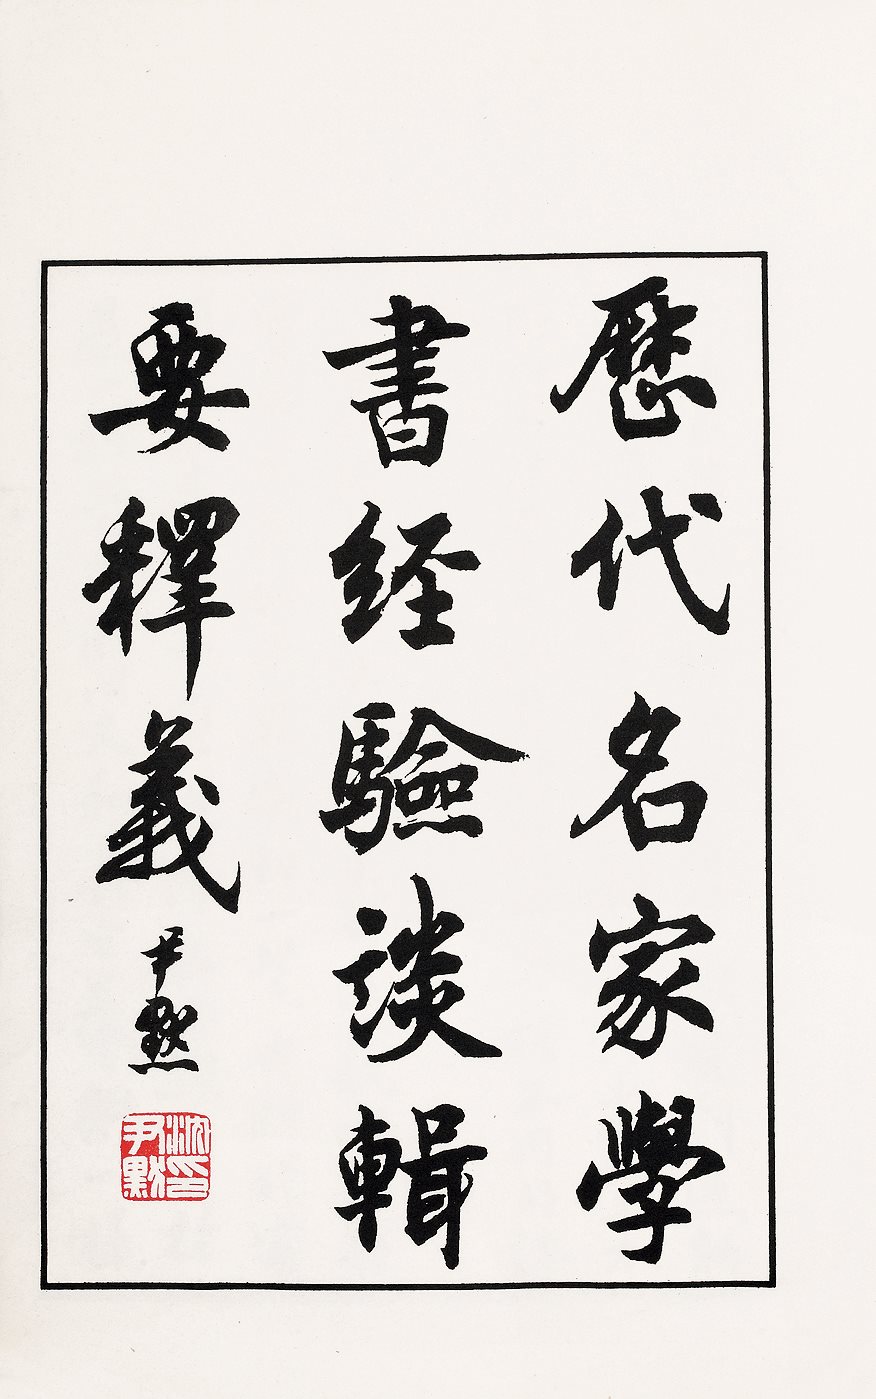 歷代名家學
書经驗談輯
要釋義
尹默
沈尹默印